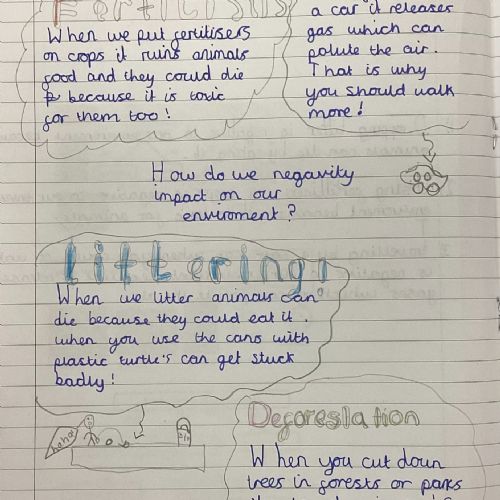 Fertilisers
When we put gertilisers
on crops it ruins animals
food and they could die
because it is toxic
for them too!
a car it releases
gas which can
polute the air.
That is why
you should walk
more!
How do we negavity
impact on our
enviroment?
littering
When we litter animals can
die because they could eat it.
when you use the cans with
plastic turtle's can get stuck
badly!
haha!
Deforestation
When you cut down
trees in forests or parks